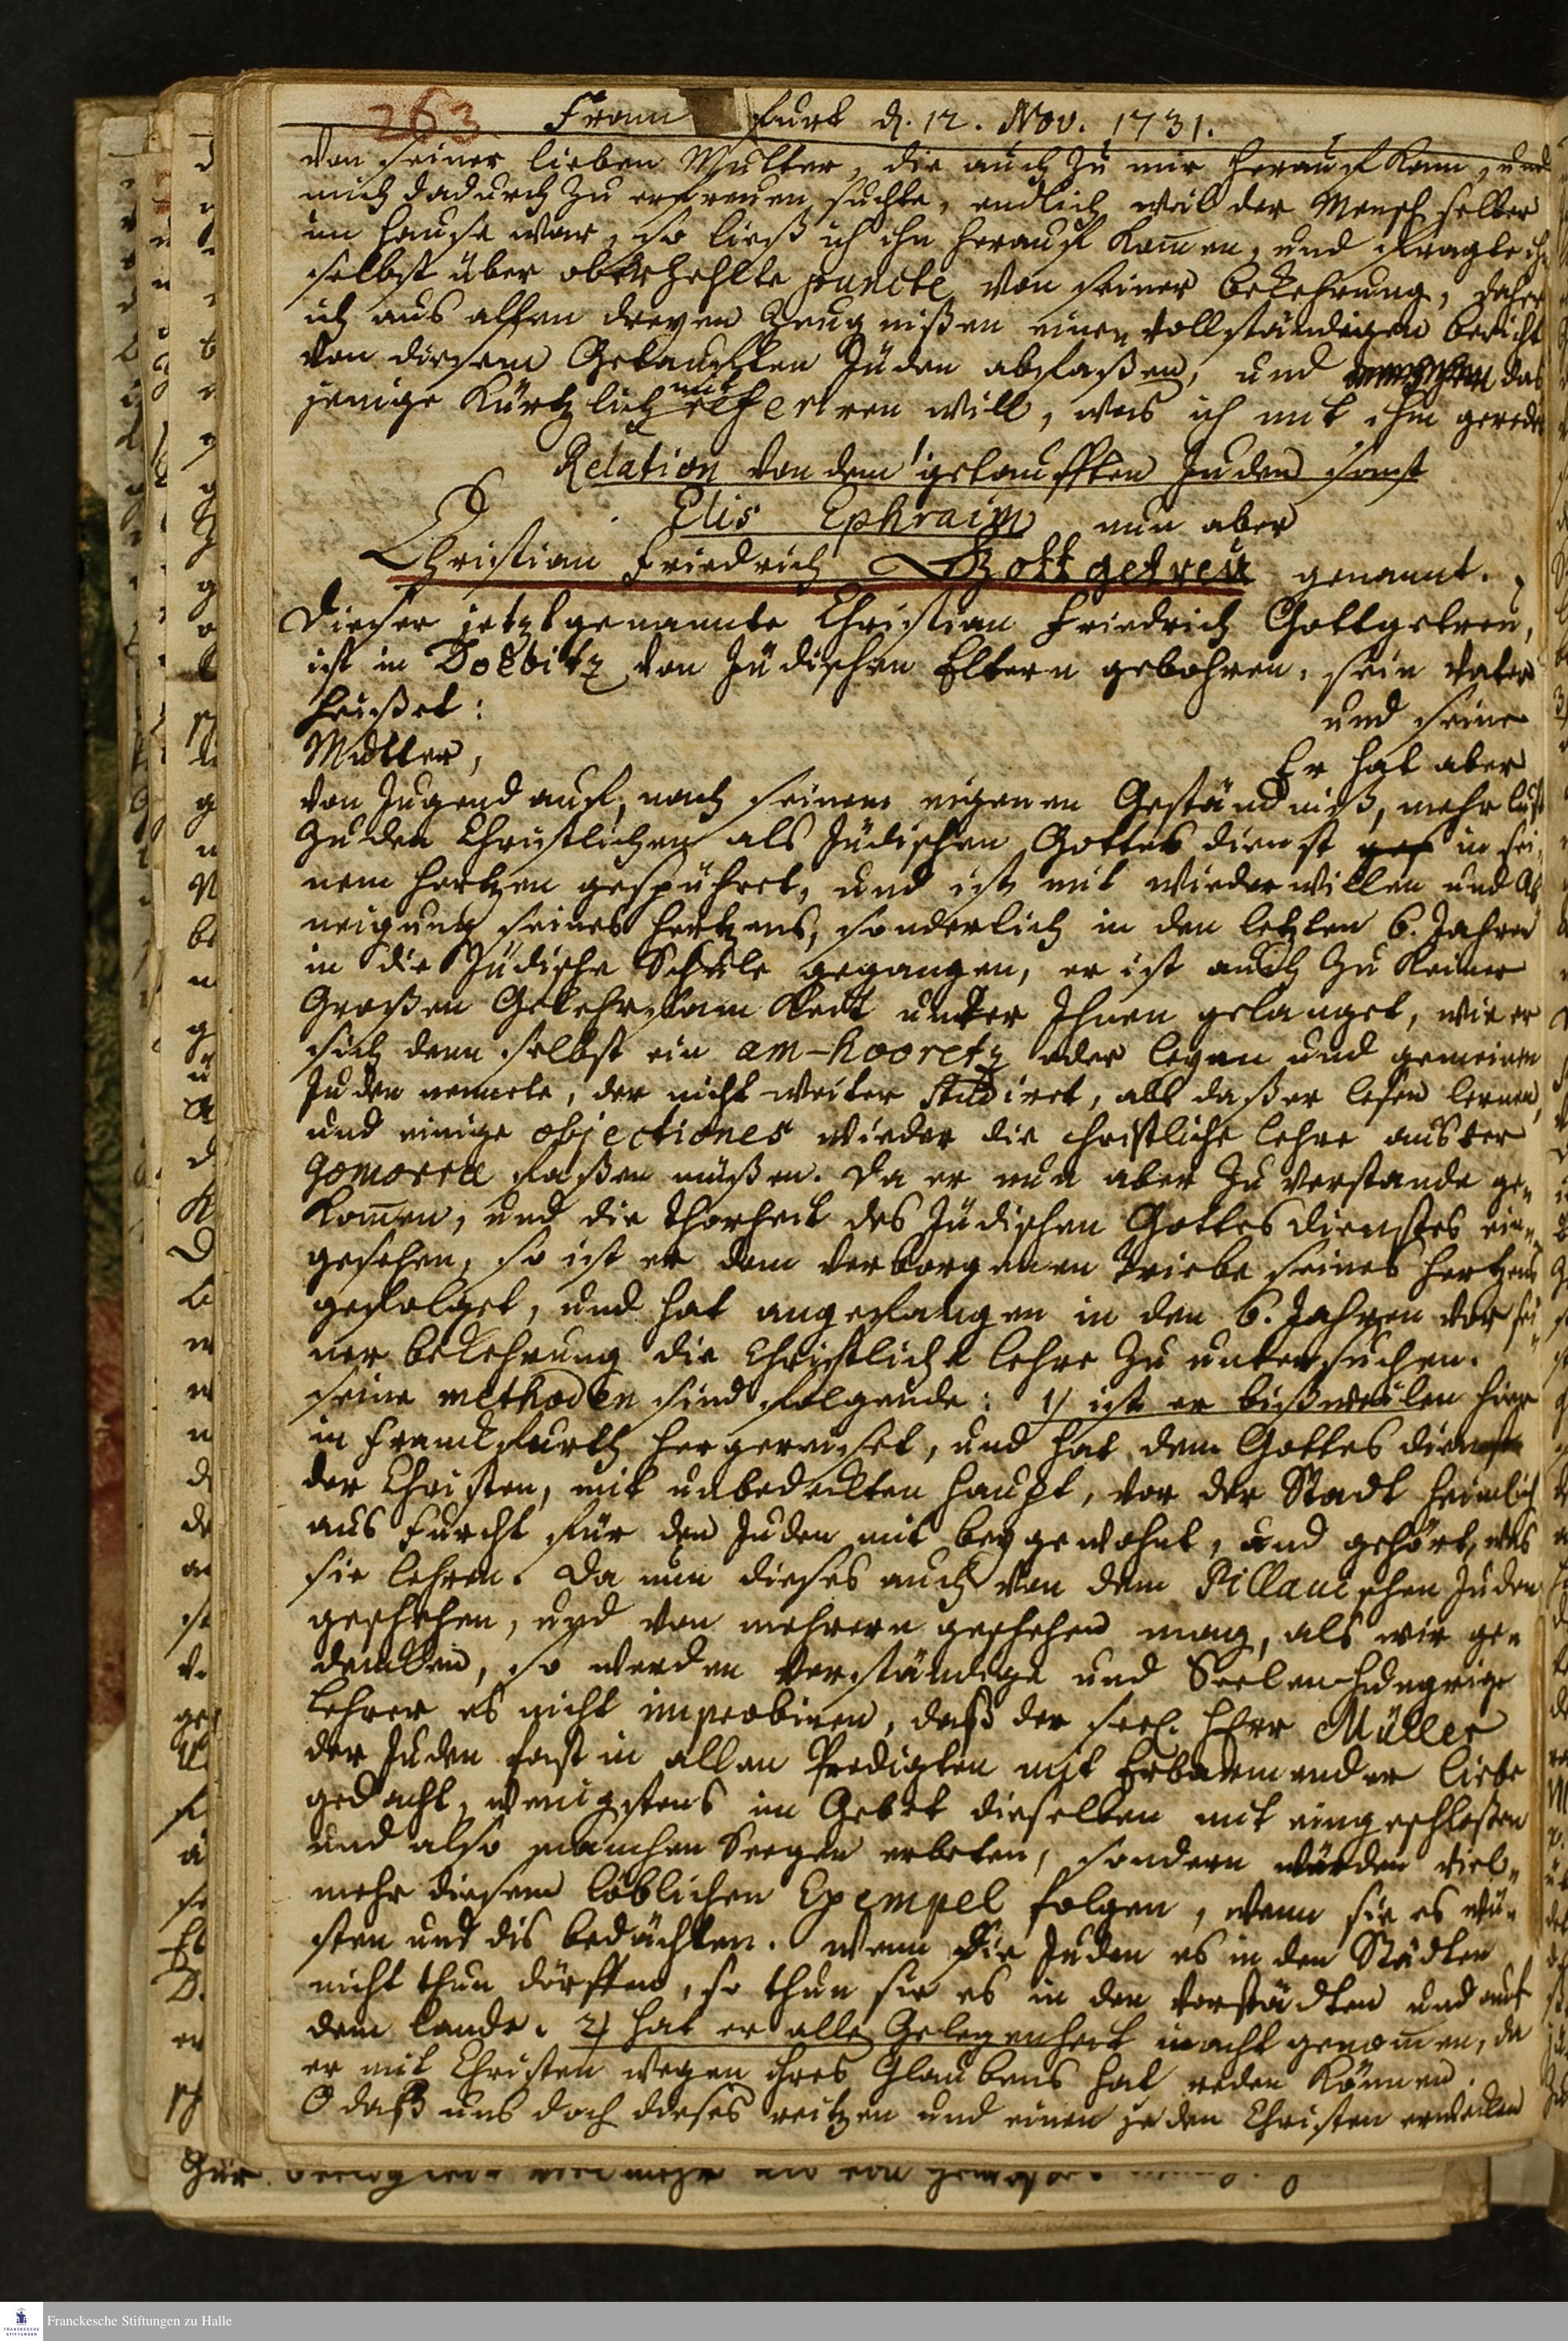 263 Franckfurt d. 12. Nov. 1731.
von seiner lieben Mutter, die auch zu mir herauf kam, und
mich dadurch zu erfreuen suchte, endlich weil der Mensch selber
im Hause war, so ließ ich ihn herauf komen, und fragte ihn
selbst über oberzehlte puncte von seiner Bekehrung, daher
ich aus allen dreyen Zeugnißen einen vollständigen bericht
von diesem Getaufften Juden abfaßen, und das
jenige kürtzlich mit referiren will, was ich mit ihm geredet
Relation von dem getaufften Juden sonst
Elis Ephraim nun aber
Christian Friedrich Gottgetreu genannt.
Dieser jetztgenannte Christian Friedrich Gottgetreu,
ist in Doebitz von Jüdischen Eltern gebohren, sein Vater
heißet: und seine
Mutter, Er hat aber
von Jugend auf, nach seinem eigenen Geständniß, mehr lust
zu den Christlichen als Jüdischen Gottes dienst in sei¬
nem hertzen gespühret, und ist mit wiederwillen und Ab
neigung seines hertzens, sonderlich in den letzten 6. Jahren
in die Jüdische Schule gegangen, er ist auch zu keiner
Großen Gelehrsamkeit unter Ihnen gelanget, wie er
sich denn selbst ein am-hooretz oder leyen und gemeinen
Juden nennete, der nicht weiter studiret, als daß er lesen lernen,
und einige objectiones wieder die christliche lehre aus der
gomorra faßen müßen. Da er nun aber zu verstande ge¬
komen, und die thorheit des Jüdischen Gottesdienstes ein¬
gesehen, so ist er dem verborgenen Triebe seines hertzens
gefolget, und hat angefangen in den 6. Jahren vor sei¬
ner bekehrung die Christliche lehre zu untersuchen.
seine methoden sind folgende: 1) ist er bißweilen hier
in Franckfurth hergereiset, und hat dem Gottes dienste
der Christen, mit unbedeckten haupt, vor der Stadt heimlich
aus Furcht für den Juden mit beygewohnt, und gehört, was
sie lehren. Da nun dieses auch von dem Pillauischen Juden
geschehen, und von mehrern geschehen mag, als wir ge¬
dencken, so werden verständige und Seelen-hungrige
Lehrer es nicht improbiren, daß der seel. HErr Müller
der Juden fast in allen Predigten mit Erbarmender liebe
gedacht, wenigstens im Gebet dieselben mit eingeschloßen
und also manchen Seegen erbeten, sondern würden viel¬
mehr diesem löblichen Exempel folgen, wenn sie es wü¬
sten und dis bedächten. Wenn die Juden es in den Städten
nicht thun dörfften, so thun sie es in den Vorstädten und auf
dem lande. 2) hat er alle Gelegenheit in acht genomen, da
er mit Christen wegen ihres Glaubens hat reden können.
O daß uns doch dieses reitzen und einen jeden Christen erwecken
Franckesche Stiftungen zu Halle